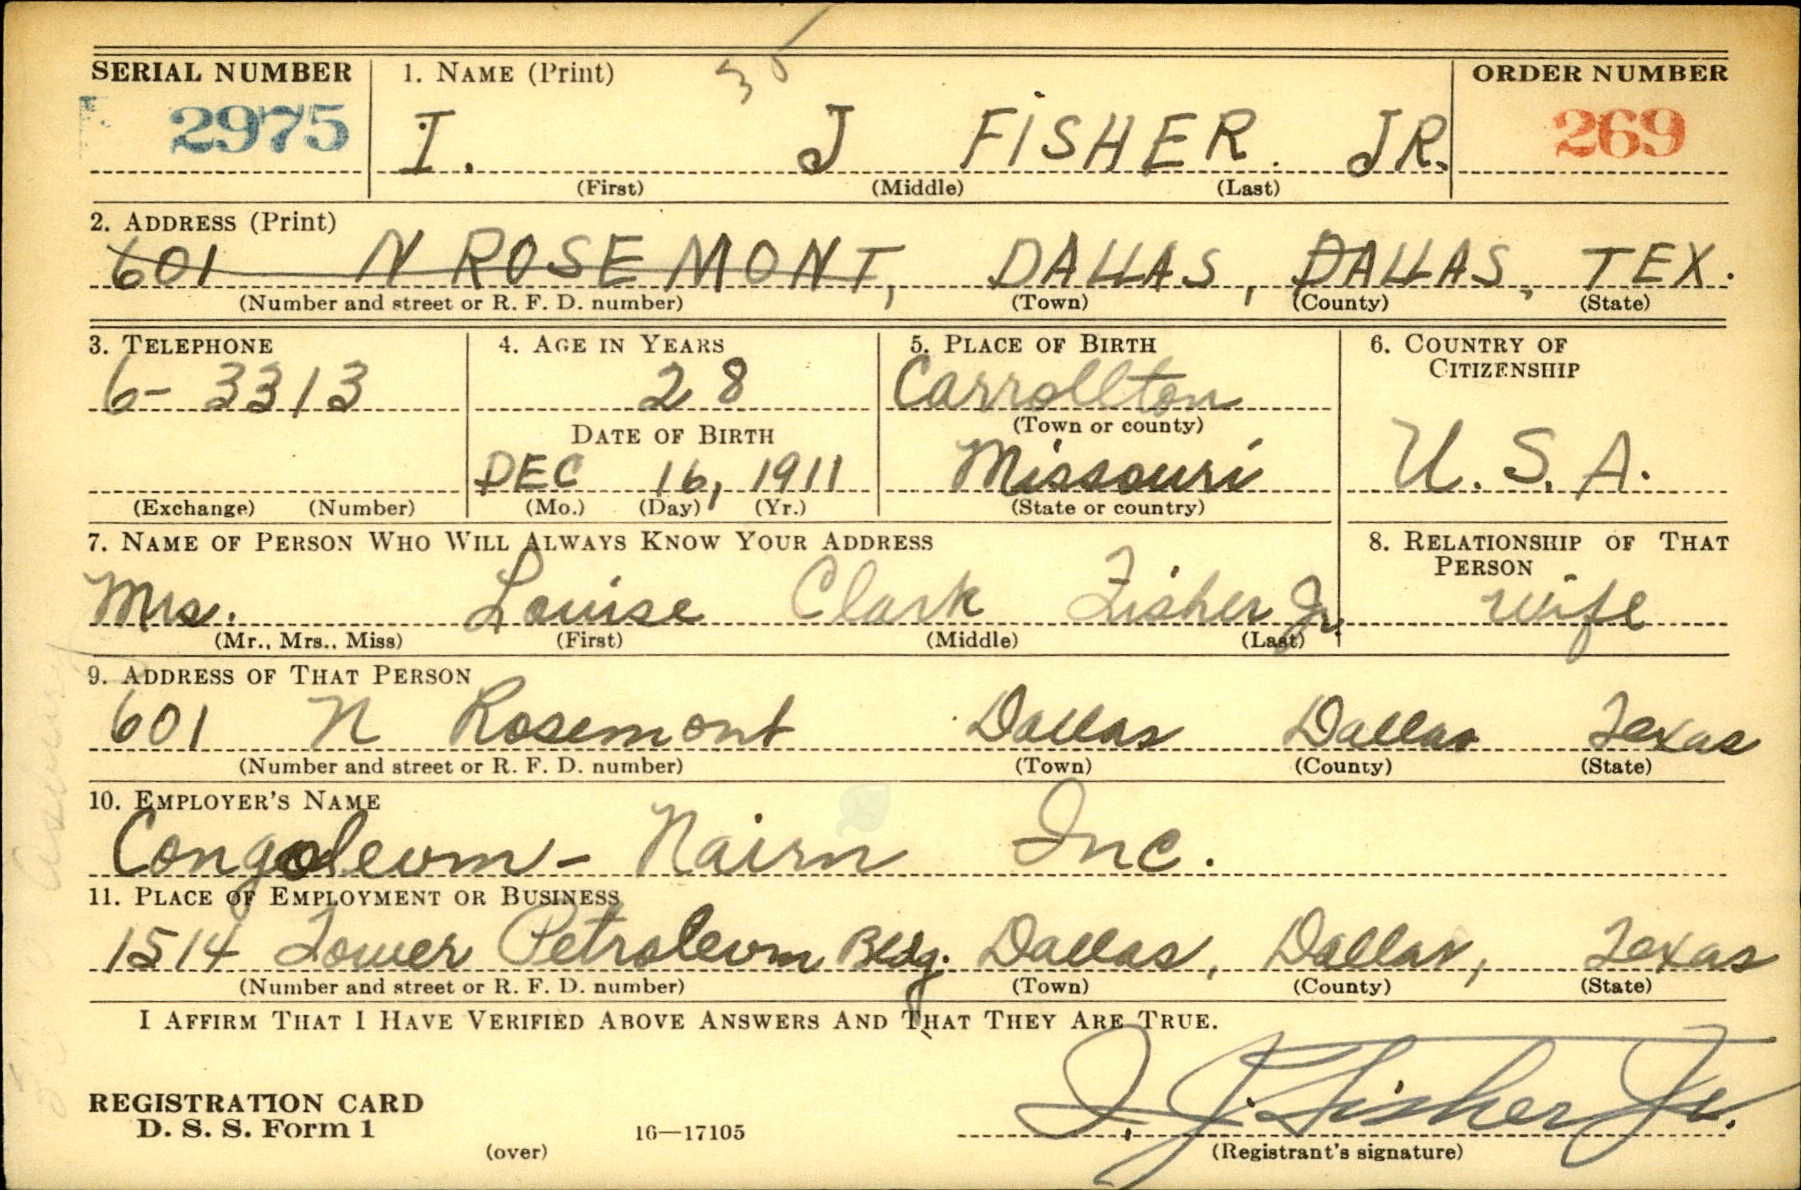 SERIAL NUMBER 1. NAME (Print) ORDER NUMBER
2975 I. J FISHER JR. 269
(First) (Middle) (Last)
2. ADDRESS (Print)
601 N ROSEMONT, DALLAS, DALLAS, TEX.
(Number and street or R. F. D. number) (Town) (County) (State)
3. TELEPHONE 4. AGE IN YEARS 5. PLACE OF BIRTH 6. COUNTRY OF
CITIZENSHIP
6-3313 28 Carrollton
(Town or county)
DATE OF BIRTH
DEC 16, 1911 Missouri U.S.A.
(Exchange) (Number) (Mo.) (Day) (Yr.) (State or country)
7. NAME OF PERSON WHO WILL ALWAYS KNOW YOUR ADDRESS 8. RELATIONSHIP OF THAT
PERSON
Mrs. Louise Clark Fisher Jr. wife
(Mr., Mrs., Miss) (First) (Middle) (Last)
9. ADDRESS OF THAT PERSON
601 N Rosemont Dallas Dallas Texas
(Number and street or R. F. D. number) (Town) (County) (State)
10. EMPLOYER'S NAME
Congoleum-Nairn Inc.
11. PLACE OF EMPLOYMENT OR BUSINESS
1514 Tower Petroleum Bldg. Dallas, Dallas, Texas
(Number and street or R. F. D. number) (Town) (County) (State)
I AFFIRM THAT I HAVE VERIFIED ABOVE ANSWERS AND THAT THEY ARE TRUE.
REGISTRATION CARD
D. S. S. Form 1 16—17105 I. J. Fisher Jr.
(over) (Registrant's signature)